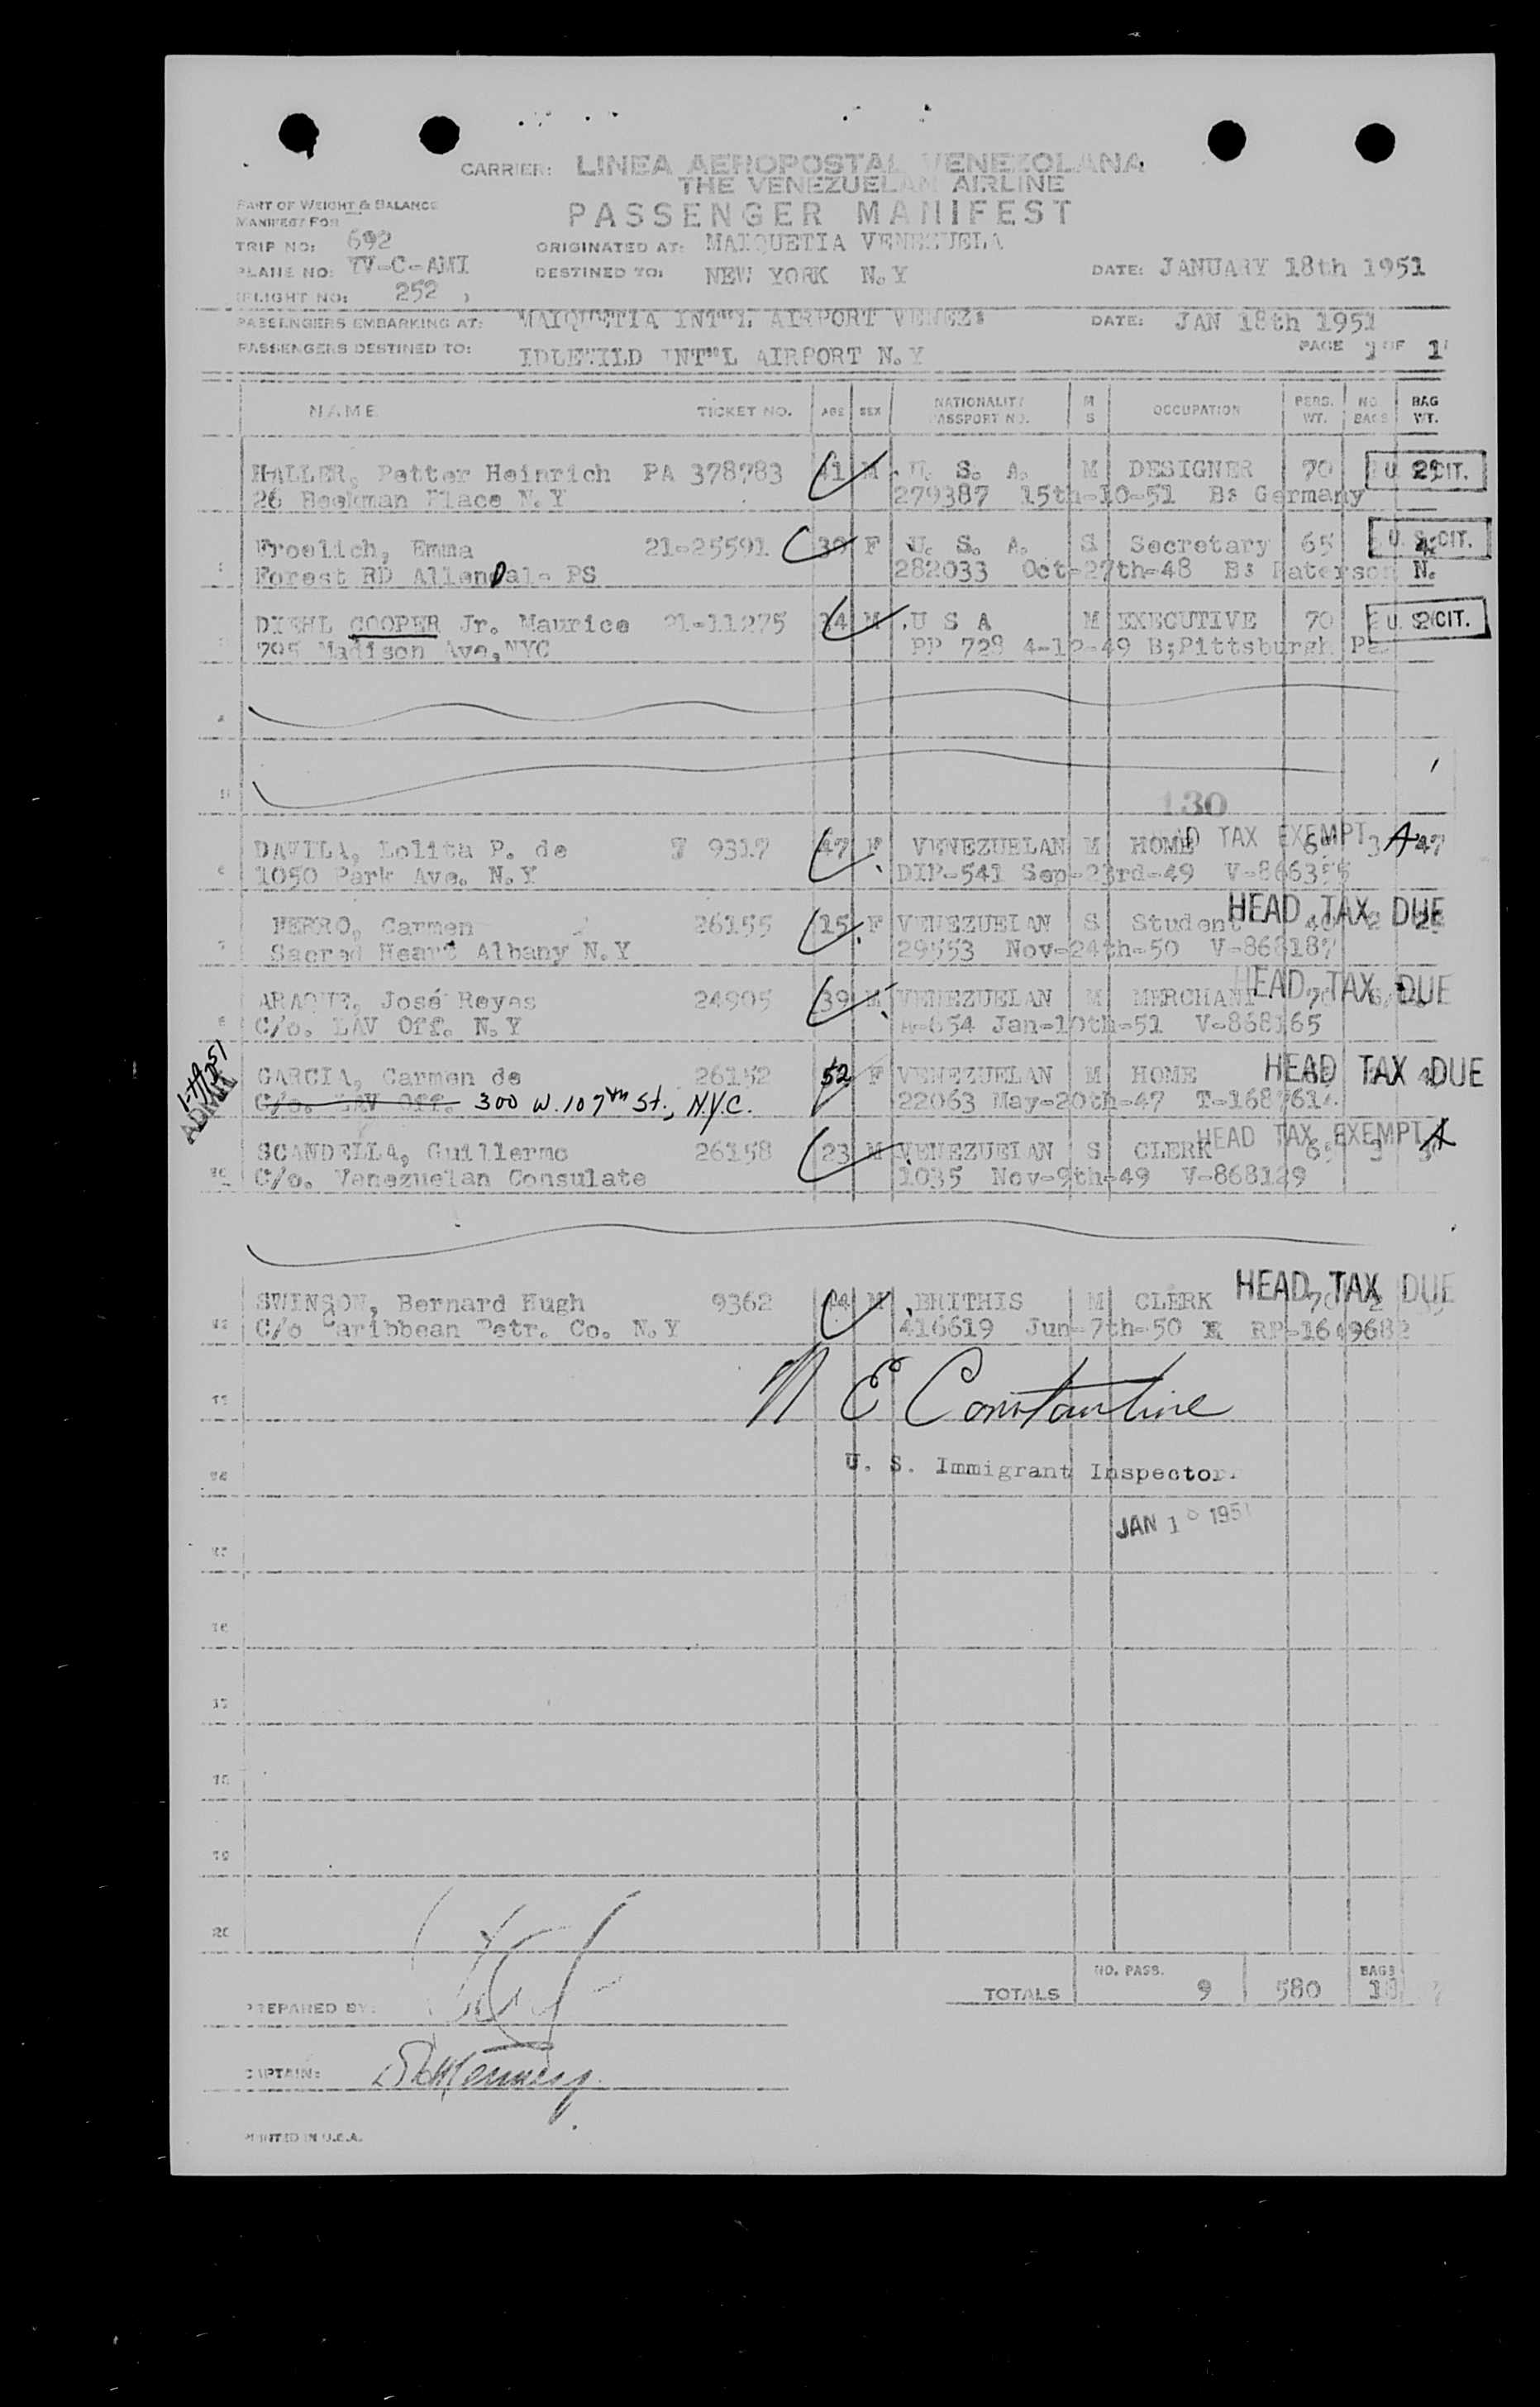 CARRIER: LINEA AEROPOSTAL VENEZOLANA
THE VENEZUELAN AIRLINE
PART OF WEIGHT & BALANCE
MANIFEST FOR
PASSENGER MANIFEST
TRIP NO: 692 ORIGINATED AT: MAIQUETIA VENEZUELA
PLANE NO: YV-C-AMI DESTINED TO: NEW YORK N.Y DATE: JANUARY 18th 1951
(FLIGHT NO: 252 )
PASSENGERS EMBARKING AT: MAIQUETIA INT"L AIRPORT VENEZ: DATE: JAN 18th 1951
PASSENGERS DESTINED TO: IDLEWILD INT"L AIRPORT N.Y PAGE 1 OF 1
NAME TICKET NO. AGE SEX NATIONALITY PASSPORT NO. M S OCCUPATION PERS. WT. NO. BAGS BAG WT.
HALLER, Petter Heinrich PA 378783 41 M U. S. A. M DESIGNER 70 U. S. CIT.
26 Beekman Place N.Y 279387 15th-10-51 B: Germany
Froelich, Emma 21-25591 39 F U. S. A. S Secretary 65 U. S. CIT.
Forest RD Allendale PS 282033 Oct-27th-48 B: Paterson N.
DIEHL COOPER Jr. Maurice 21-11275 34 M U S A M EXECUTIVE 70 U. S. CIT.
795 Madison Ave, NYC PP 728 4-12-49 B;Pittsburgh Pa.
4
5
130
DAVILA, Lolita P. de 9317 47 F VENEZUELAN M HOME HEAD TAX EXEMPT 3 A 47
6 1050 Park Ave. N.Y DIP-541 Sep-23rd-49 V-866355
BERRO, Carmen 26155 15 F VENEZUELAN S Student HEAD TAX DUE
7 Sacred Heart Albany N.Y 29553 Nov-24th-50 V-868187
ARAQUE, José Reyes 24905 39 M VENEZUELAN M MERCHANT 70 HEAD TAX DUE
8 C/o. LAV Off. N.Y A-654 Jan-10th-51 V-868165
ADMIT
GARCIA, Carmen de 26152 52 F VENEZUELAN M HOME HEAD TAX DUE
C/o. LAV Off. 300 W. 107th St., N.Y.C. 22063 May-20th-47 T-1687614
SCANDELLA, Guillermo 26158 23 M VENEZUELAN S CLERK HEAD TAX EXEMPT 65 3 A
10 C/o. Venezuelan Consulate 1035 Nov-9th-49 V-868129
SWINSON, Bernard Hugh 9362 44 M BRITHIS M CLERK 70 2 HEAD TAX DUE
C/o Caribbean Petr. Co. N.Y 416619 Jun-7th-50 RP-1649682
N E Constantine
U. S. Immigrant Inspector.
JAN 18 1951
16
17
18
19
20
TOTALS NO. PASS. 9 580 BAGS 18
PREPARED BY:
CAPTAIN:
PRINTED IN U.S.A.